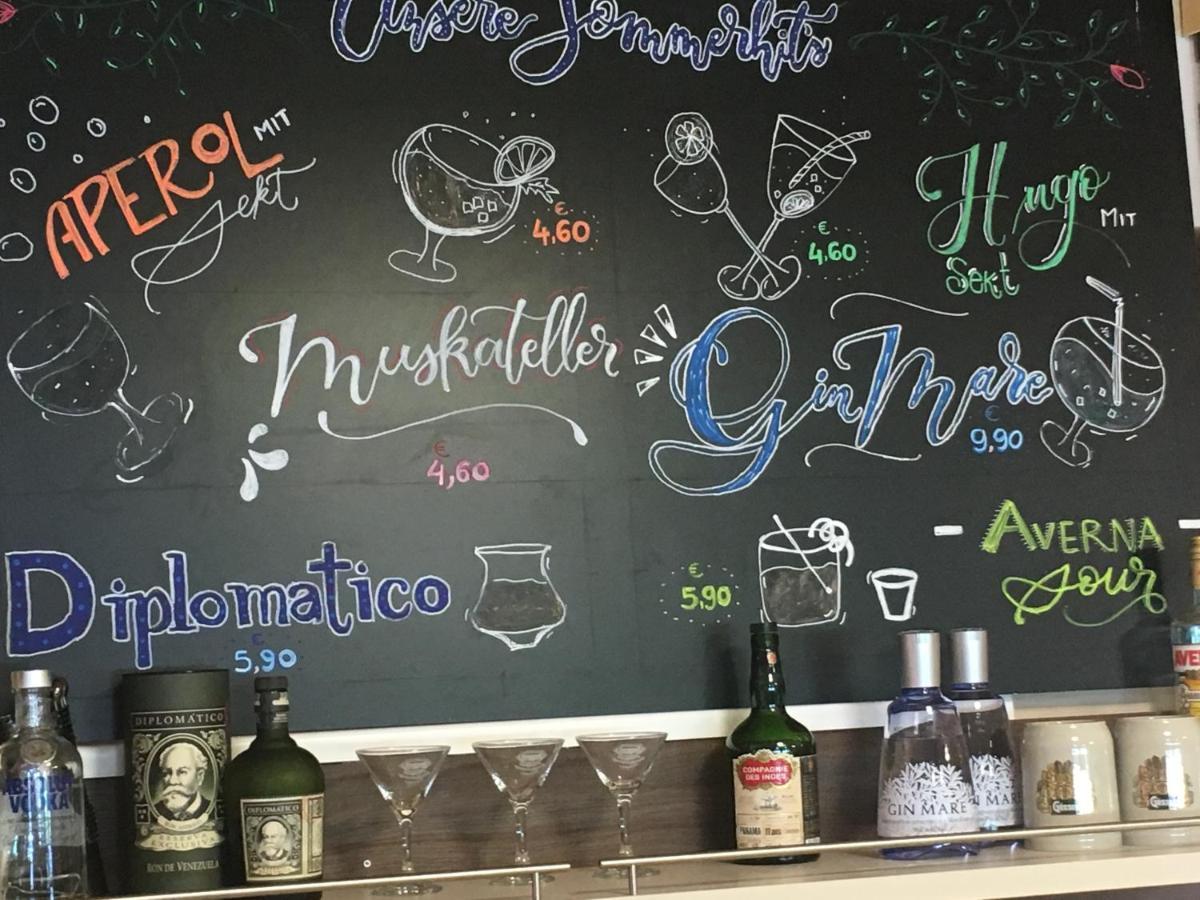 Unsere Sommerhits
APEROL MIT
Sekt
€
4,60
€
4,60
Hugo MIT
Sekt
Muskateller
€
4,60
Gin Mare
€
9,90
Diplomatico
€
5,90
€
5,90
AVERNA
Sour
ABSOLUT
VODKA
DIPLOMÁTICO
RESERVA
EXCLUSIVA
RON DE VENEZUELA
DIPLOMÁTICO
COMPAGNIE
DES INDES
PANAMA
GIN MARE
MARE
Gösser
Gösser
AVER